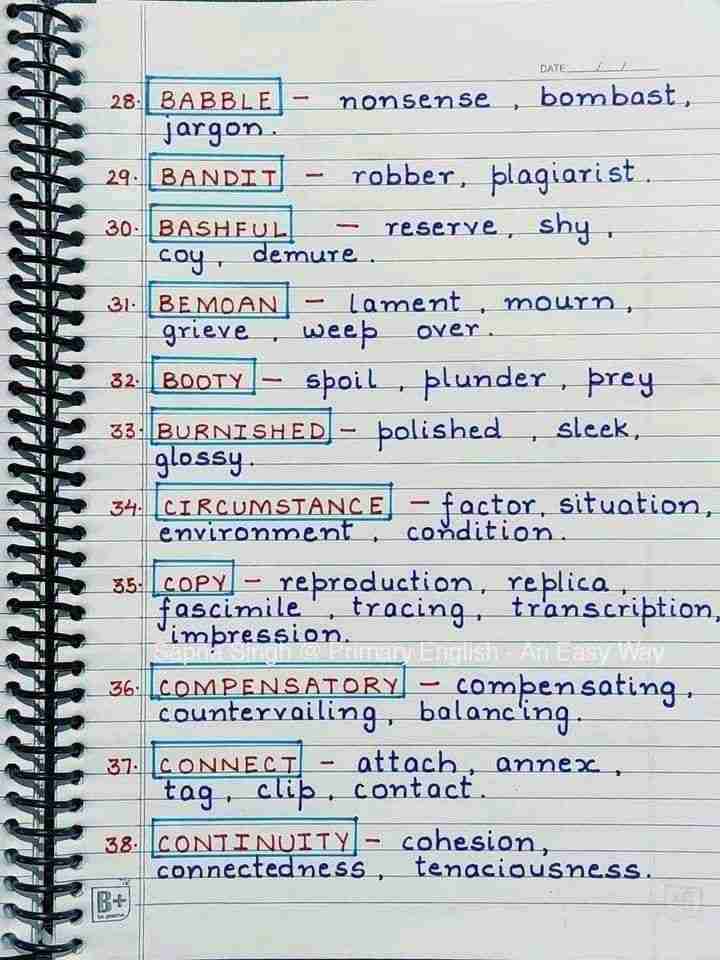 DATE / /
28. BABBLE - nonsense, bombast,
jargon.
29. BANDIT - robber, plagiarist.
30. BASHFUL - reserve, shy,
coy, demure.
31. BEMOAN - lament, mourn,
grieve, weep over.
32. BOOTY - spoil, plunder, prey
33. BURNISHED - polished, sleek,
glossy.
34. CIRCUMSTANCE - factor, situation,
environment, condition.
35. COPY - reproduction, replica,
fascimile, tracing, transcription,
impression.
Sapna Singh @ Primary English - An Easy Way
36. COMPENSATORY - compensating,
countervailing, balancing.
37. CONNECT - attach, annex,
tag, clip, contact.
38. CONTINUITY - cohesion,
connectedness, tenaciousness.
B+
be positive